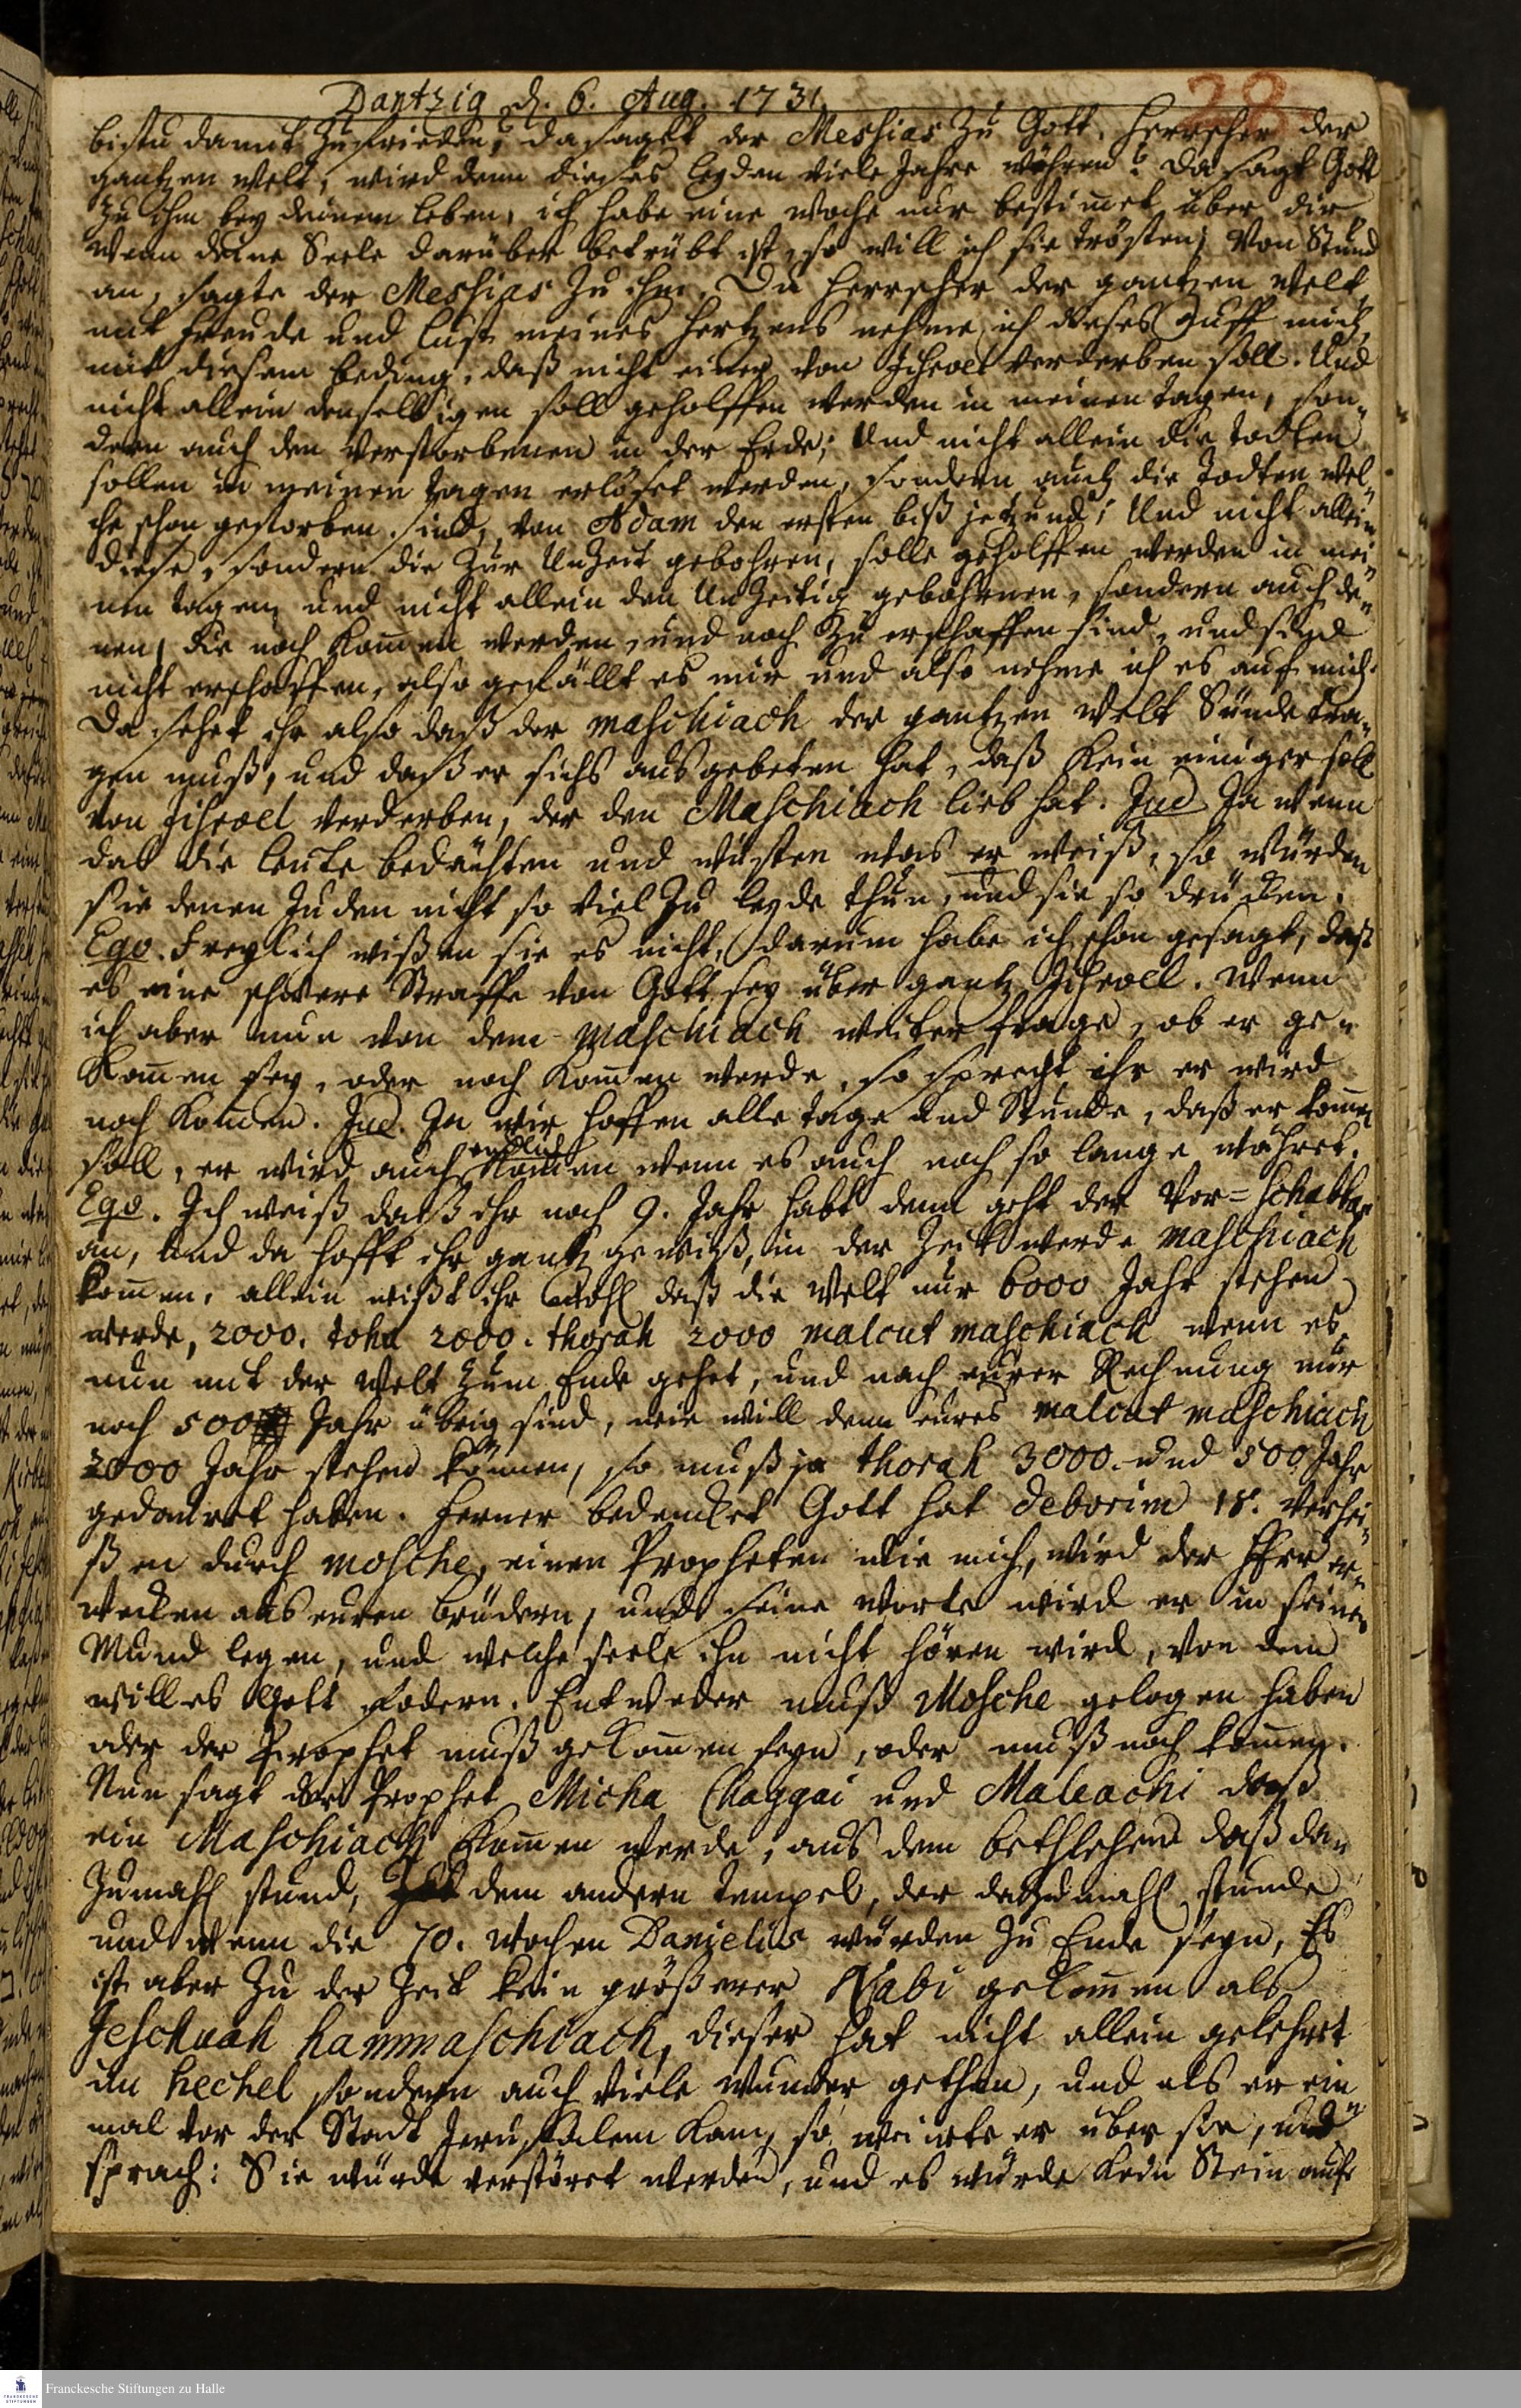 Dantzig d. 6. Aug. 1731.
28
bistu damit zufrieden, da sagt der Messias zu Gott. Herrscher der
gantzen Welt, wird denn dieses leyden viele Jahre währen? da sagt Gott
zu ihm bey deinem leben, ich habe eine woche nur bestim̄et über dir
wenn deine Seele darüber betrübt ist, so will ich sie trösten, Von Stund
an, sagte der Messias zu ihm. Du Herrscher der gantzen Welt,
mit freude und lust meines Hertzens nehme ich dieses auff mich,
mit diesem beding, daß nicht einer von Jisroel verderben soll. Und
nicht allein denselbigen soll geholffen werden in meinen tagen, son„
dern auch den verstorbenen in der Erde; Und nicht allein die todten
sollen in meinen tagen erlöset werden, sondern auch die todten wel„
che schon gestorben sind, von Adam den ersten biß jetzund; Und nicht allein
diese, sondern die zur Unzeit gebohren, solle geholffen werden in mei„
nen tagen und nicht allein den Unzeitig gebohrnen, sondern auch de„
nen, die noch kom̄en werden, und noch zu erschaffen sind, und sind
nicht erschaffen, also gefällt es mir und also nehme ich es auf mich.
Da sehet ihr also daß der maschiach der gantzen Welt Sünde tra„
gen muß, und daß er sichs ausgebeten hat, daß kein einiger soll
von Jisroel verderben, der den Maschiach lieb hat. Jud. Ja wenn
das die leute bedächten und wüsten was er weiß, so würden
sie denen Juden nicht so viel zu leyde thun, und sie so drücken.
Ego. Freylich wißen sie es nicht, darum habe ich schon gesagt, daß
es eine schwere Straffe von Gott sey über gantz Jisroel. Wenn
ich aber nun von dem maschiach weiter frage, ob er ge„
kom̄en sey, oder noch kom̄en werde, so sprecht ihr er wird
noch kom̄en. Jud. Ja wir hoffen alle tage und Stunde, daß er kom̄en
soll, er wird auch endlich kom̄en wenn es auch noch so lange währet.
Ego. Ich weiß daß ihr noch 9. Jahr habt denn geht der Vor=schabbas
an, und da hofft ihr gantz gewiß, in der Zeit werde maschiach
kom̄en, allein wißt ihr wohl daß die Welt nur 6000 Jahr stehen
werde, 2000. tohu 2000. thorah 2000 malcut maschiach wenn es
nun mit der Welt zum Ende gehet, und nach eurer Rechnung nur
noch 500 Jahr übrig sind, wie will denn eures malcut maschiach
2000 Jahr stehen können, so muß ja thorah 3000. und 500 Jahr
gedauret haben. Ferner bedencket Gott hat deborim 18. verhei„
ßen durch mosche, einen Propheten wie mich, wird der HErr er„
wecken aus euren brüdern, und seine worte wird er in seinen
Mund legen, und welche seele ihn nicht hören wird, von dem
will es Gott fodern. Entweder muß Mosche gelogen haben
oder der Prophet muß gekom̄en seyn, oder muß noch kom̄en.
Nun sagt der Prophet Micha Chaggai und Maleachi daß
ein Maschiach kom̄en werde, aus dem bethlehem daß da„
zumahl stund, dem andern tempel, der dazumahl stunde
und wenn die 70. Wochen Danielis würden zu Ende seyn, Es
ist aber zu der Zeit kein größerer Nabi gekom̄en als
Jeschuah hammaschiach, dieser hat nicht allein gelehret
im hechel sondern auch viele Wunder gethan, und als er ein„
mal vor der Stadt Jerusalem kam, so weinete er über sie, und
sprach: Sie würde verstöret werden, und es würde kein Stein auf
Franckesche Stiftungen zu Halle